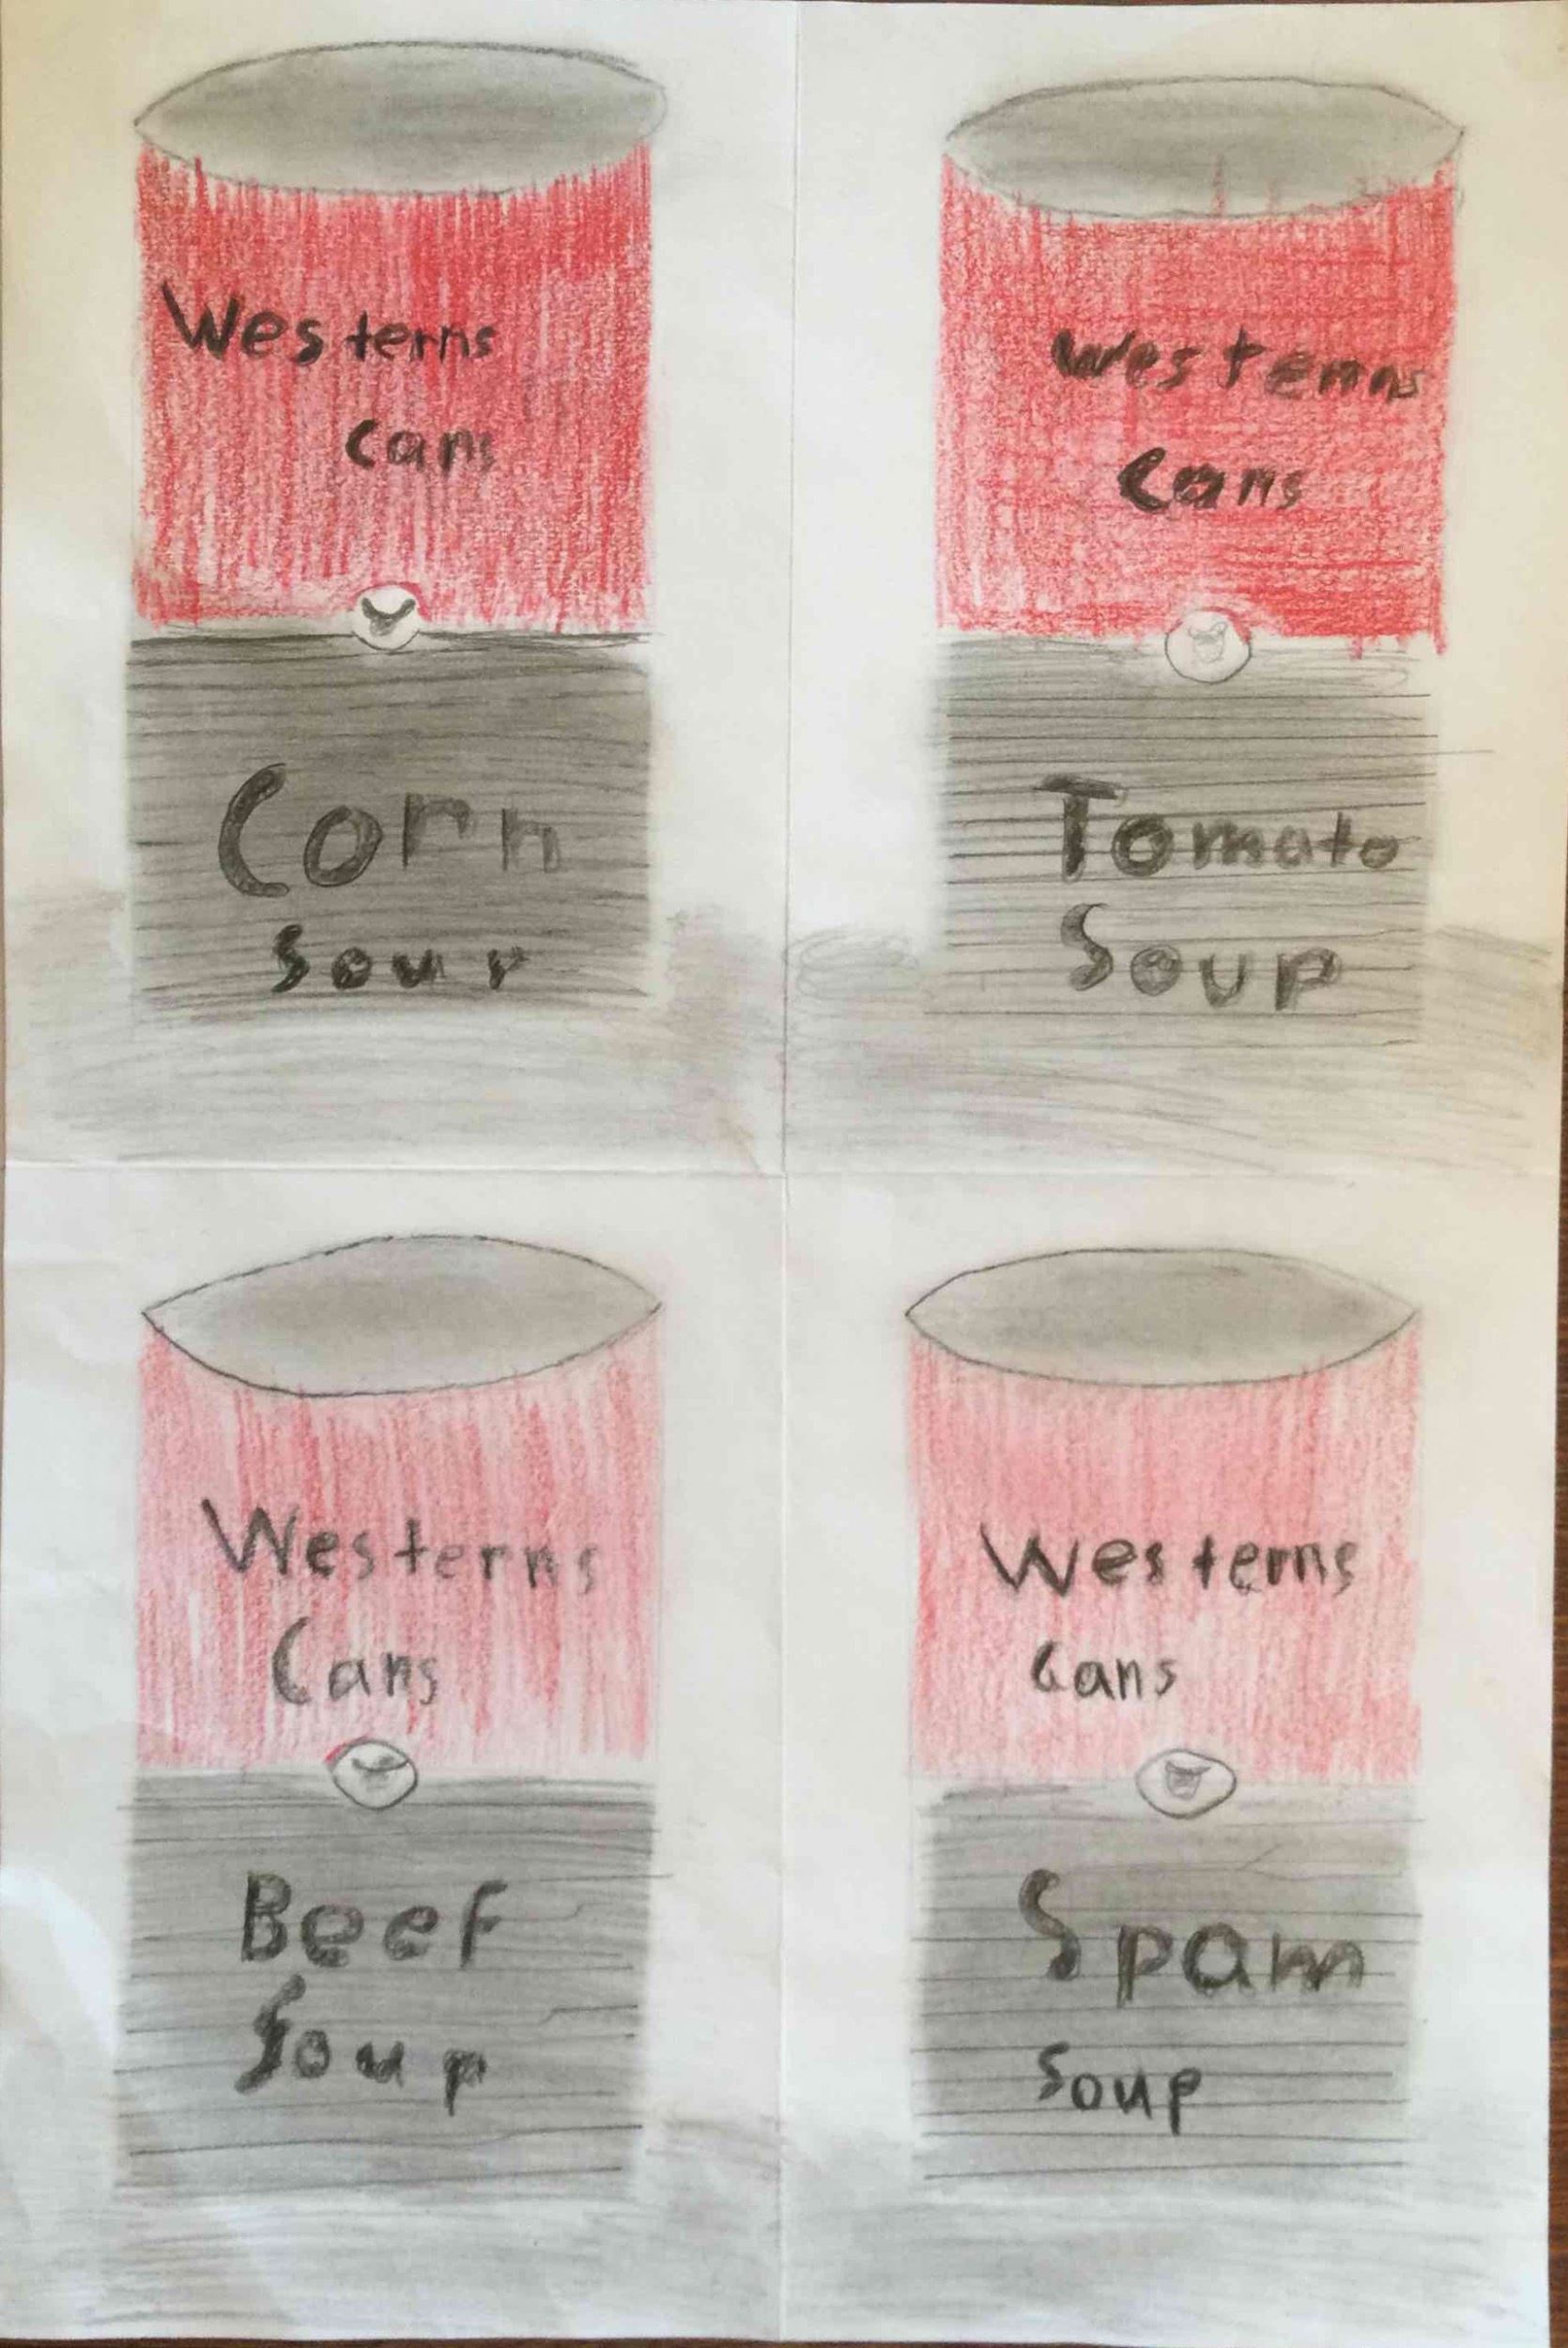 Westerns
cans
Corn
Soup
Westerns
Cans
Tomato
Soup
Westerns
Cans
Beef
Soup
Westerns
Cans
Spam
Soup